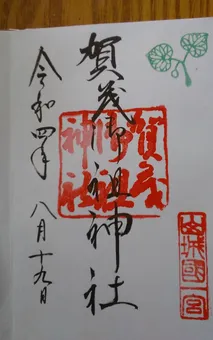 山城國一宮
賀茂御祖神社
賀茂
御祖
神社
令和四年 八月十九日